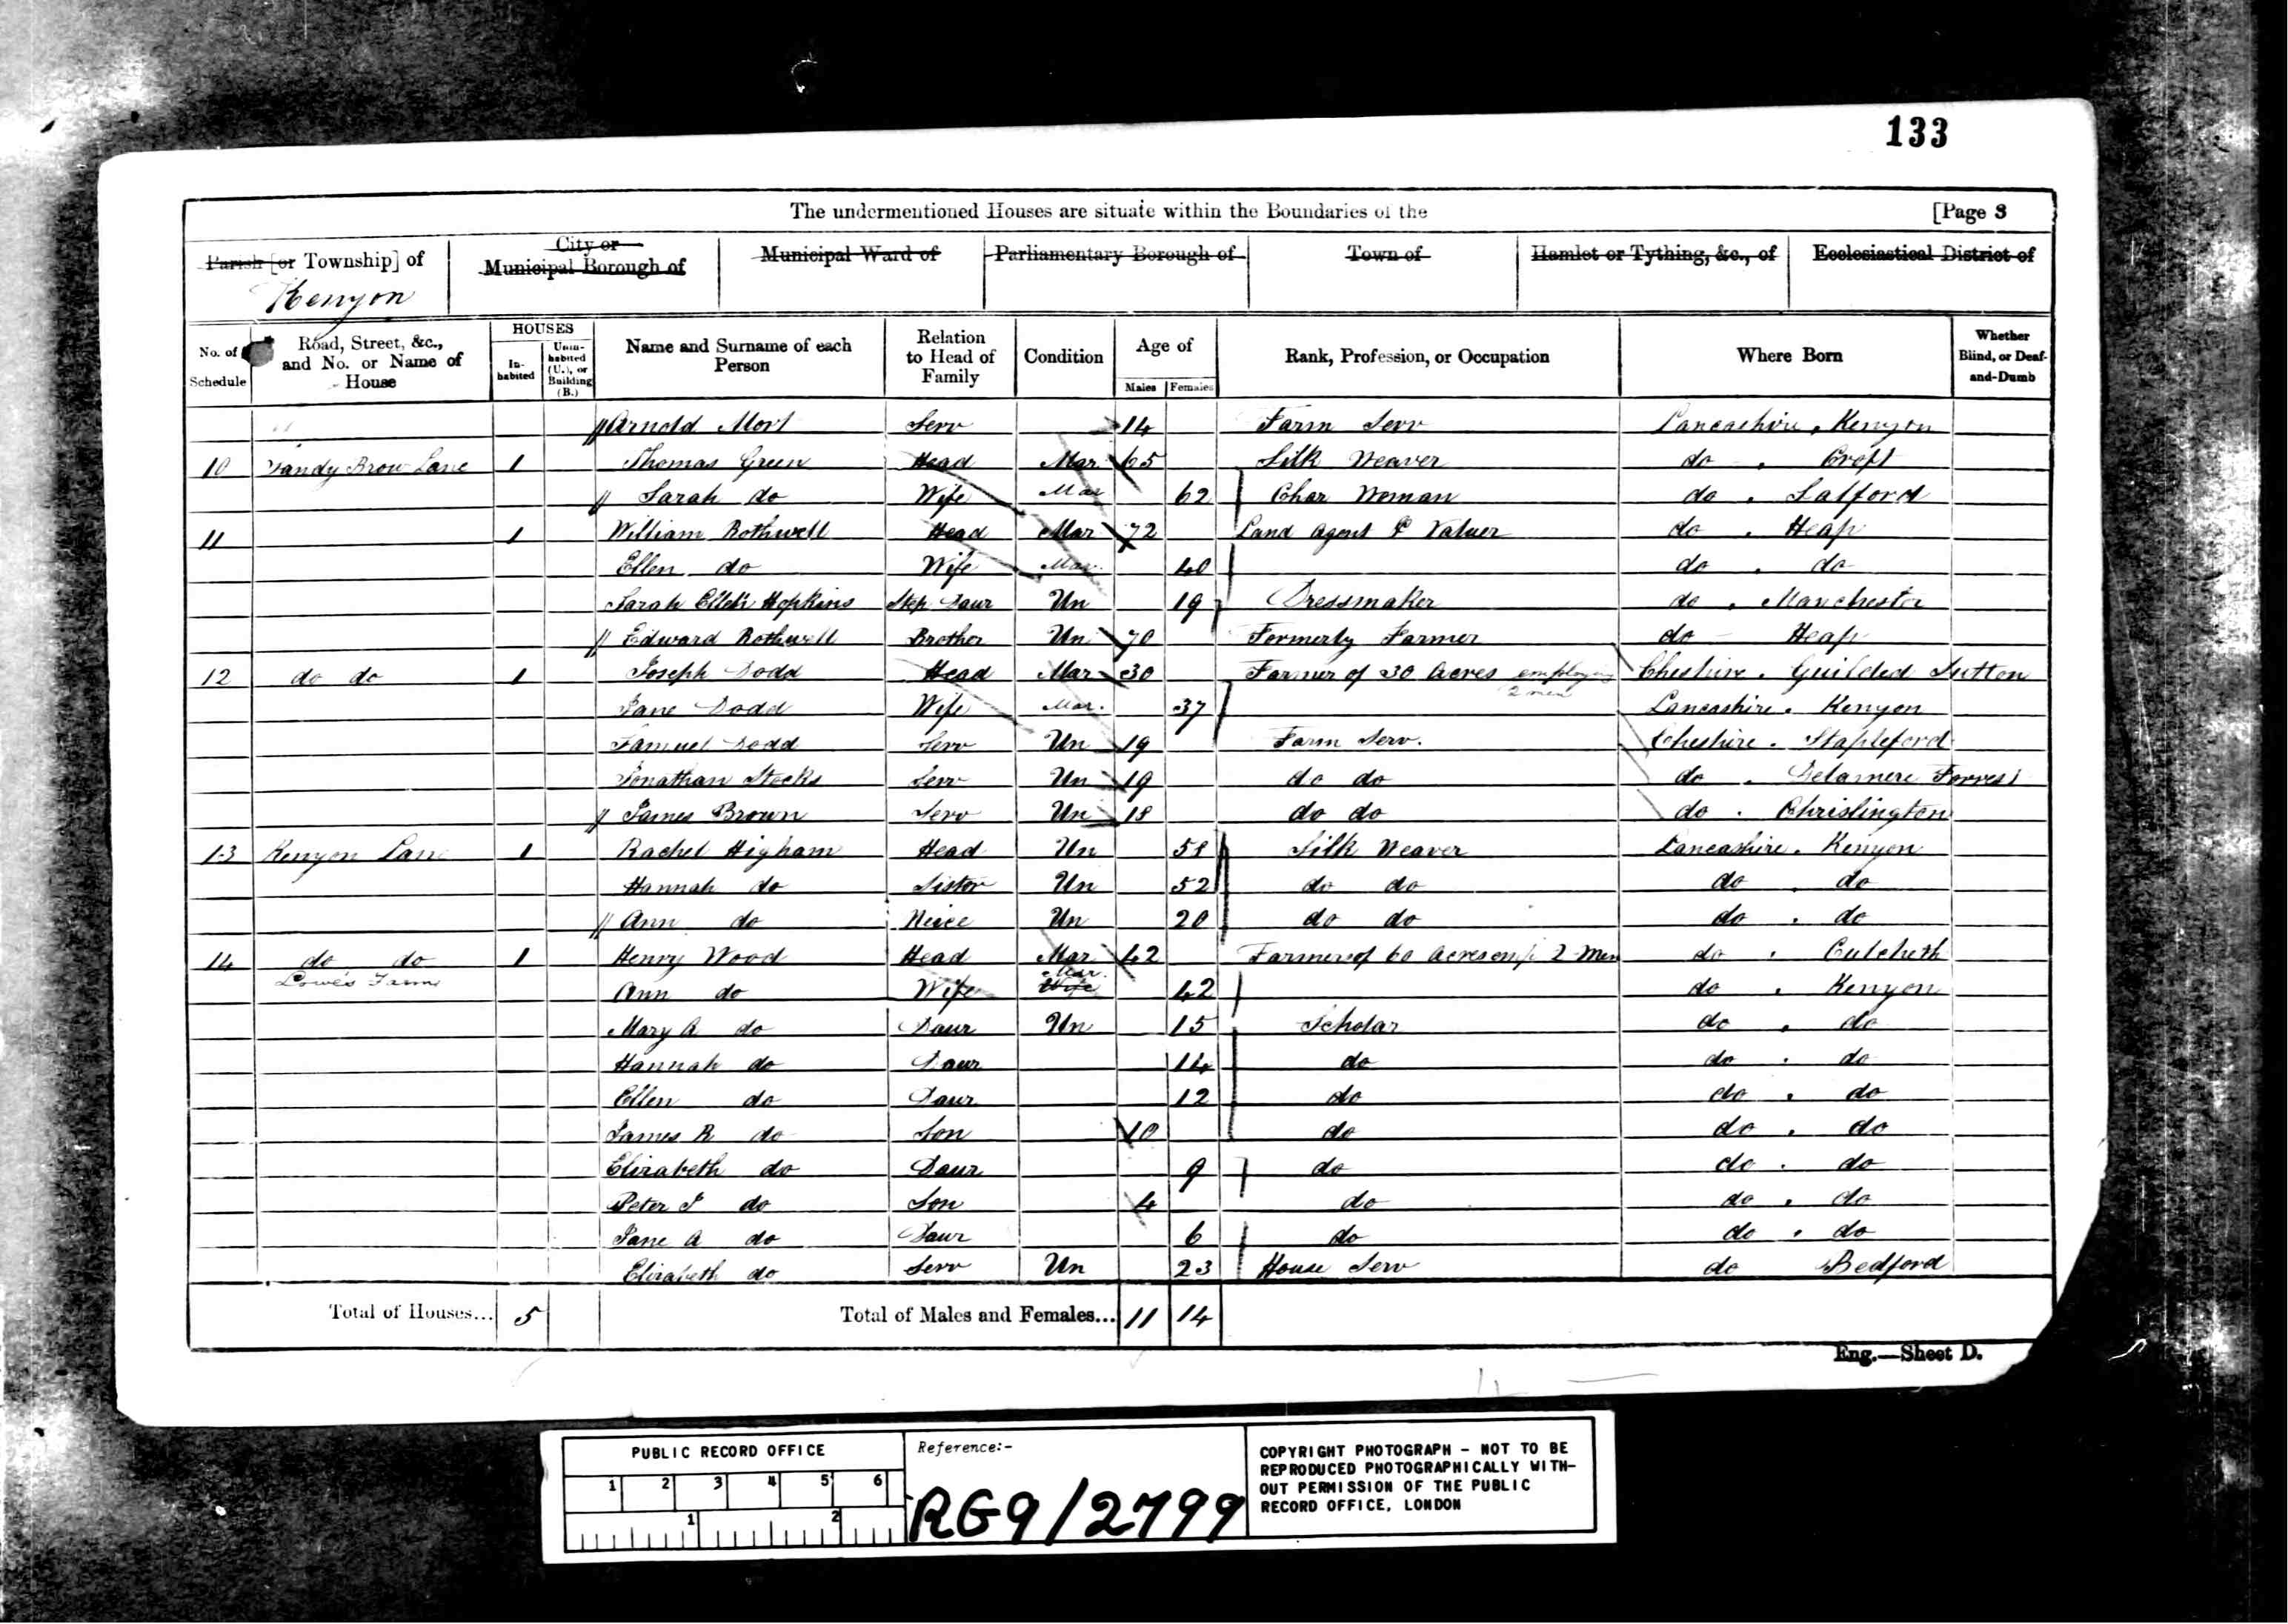 133
The undermentioned Houses are situate within the Boundaries of the [Page 3
Parish [or Township] of City or Municipal Borough of Municipal Ward of Parliamentary Borough of Town of Hamlet or Tything, &c., of Ecclesiastical District of
Kenyon
No. of Schedule Road, Street, &c., and No. or Name of House HOUSES In-habited Unin-habited (U.), or Building (B.) Name and Surname of each Person Relation to Head of Family Condition Age of Males Females Rank, Profession, or Occupation Where Born Whether Blind, or Deaf-and-Dumb
Arnold Mort Serv 14 Farm Serv Lancashire . Kenyon
10 Sandy Brow Lane 1 Thomas Green Head Mar 65 Silk Weaver do . Croft
Sarah do Wife Mar 62 Char Woman do . Salford
11 1 William Rothwell Head Mar 72 Land Agent & Valuer do . Heap
Ellen do Wife Mar. 40 do . do
Sarah Ellen Hopkins Step Daur Un 19 Dressmaker do . Manchester
Edward Rothwell Brother Un 70 Formerly Farmer do Heap
12 do do 1 Joseph Dodd Head Mar 30 Farmer of 30 Acres employing 2 men Cheshire . Guilded Sutton
Jane Dodd Wife Mar. 37 Lancashire . Kenyon
Samuel Dodd Serv Un 19 Farm Serv. Cheshire . Stapleford
Jonathan Stocks Serv Un 19 do do do . Delamere Forrest
James Brown Serv Un 18 do do do . Christington
13 Kenyon Lane 1 Rachel Higham Head Un 58 Silk Weaver Lancashire . Kenyon
Hannah do Sister Un 52 do do do . do
Ann do Neice Un 20 do do do . do
14 do do 1 Henry Wood Head Mar 42 Farmer of 60 Acres emp 2 Men do . Culcheth
Lowe's Farm Ann do Wife Wife Mar. 42 do . Kenyon
Mary A do Daur Un 15 Scholar do . do
Hannah do Daur 14 do do . do
Ellen do Daur 12 do do . do
James R do Son 10 do do . do
Elizabeth do Daur 9 do do . do
Peter J do Son 4 do do . do
Jane A do Daur 6 do do . do
Elizabeth do Serv Un 23 House Serv do Bedford
Total of Houses... 5 Total of Males and Females... 11 14
Eng.—Sheet D.
PUBLIC RECORD OFFICE
1 2 3 4 5 6
1 2
Reference:-
RG9/2799
COPYRIGHT PHOTOGRAPH - NOT TO BE
REPRODUCED PHOTOGRAPHICALLY WITH-
OUT PERMISSION OF THE PUBLIC
RECORD OFFICE, LONDON